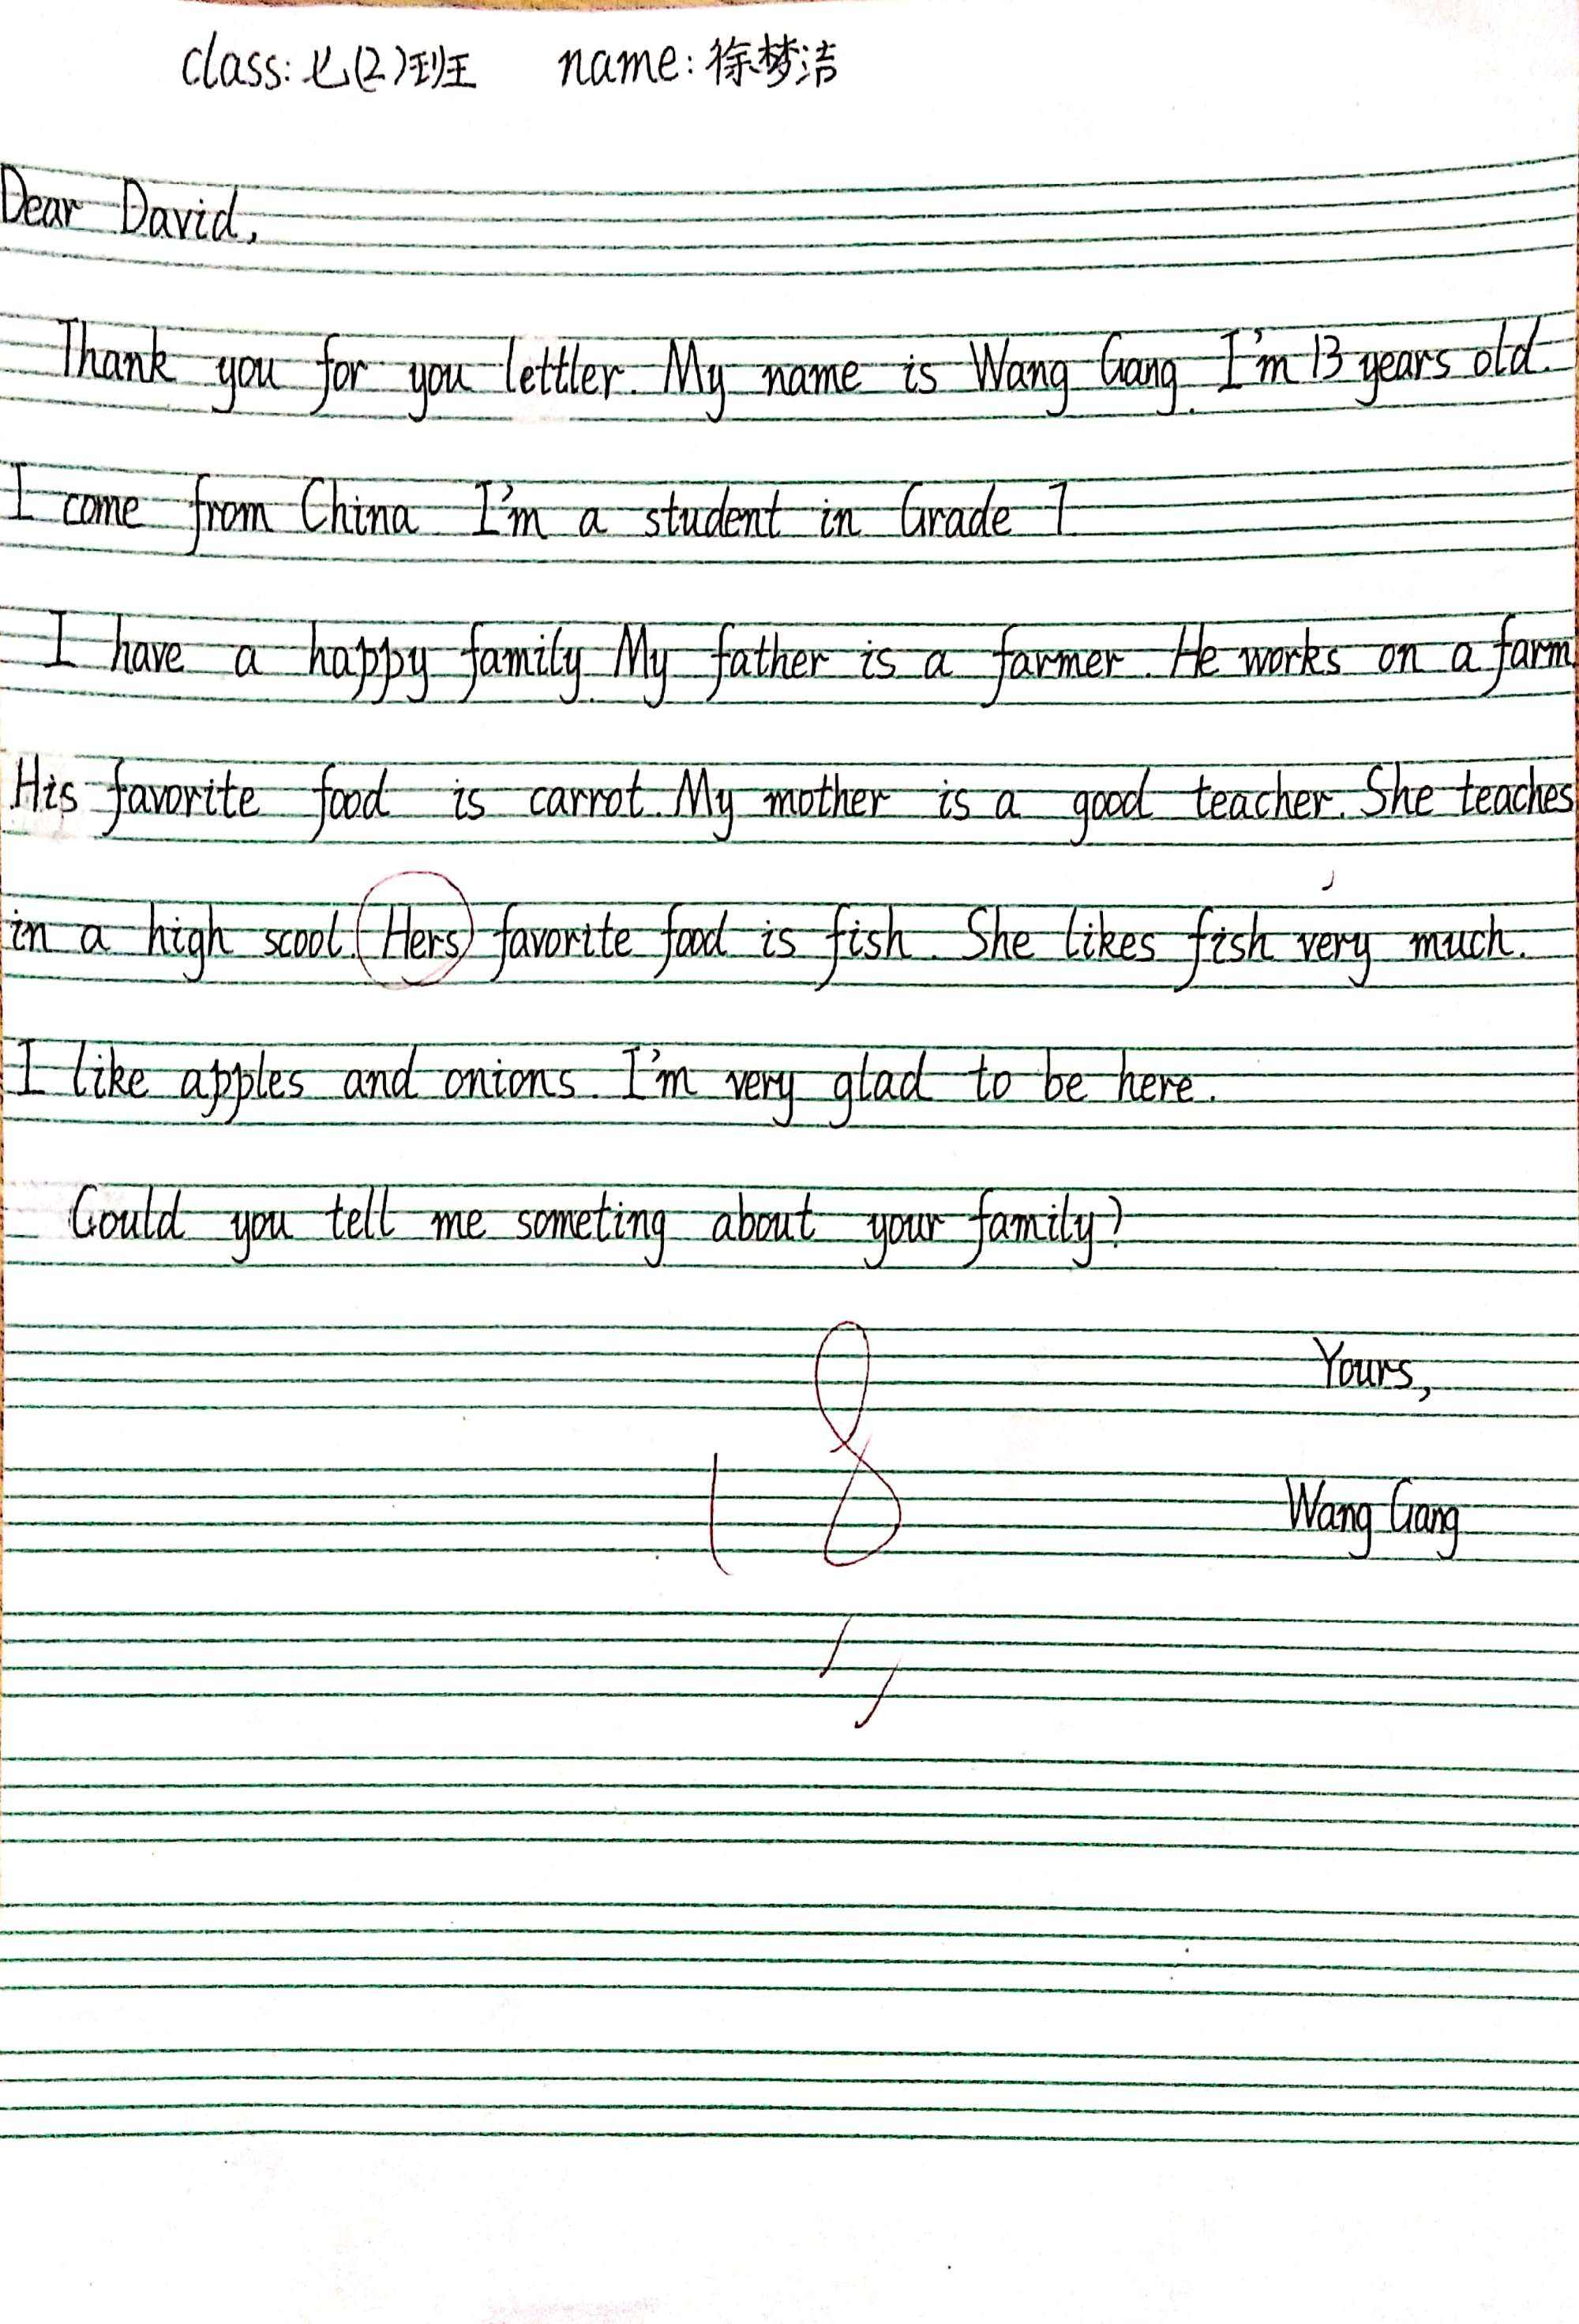 class: 七(2)班 name: 徐梦洁
Dear David,
Thank you for you lettler. My name is Wang Gang. I'm 13 years old.
I come from China I'm a student in Grade 7
I have a happy family. My father is a farmer. He works on a farm.
His favorite food is carrot. My mother is a good teacher. She teaches
in a high scool. Hers favorite food is fish. She likes fish very much.
I like apples and onions. I'm very glad to be here.
Could you tell me someting about your family?
Yours,
Wang Gang
18